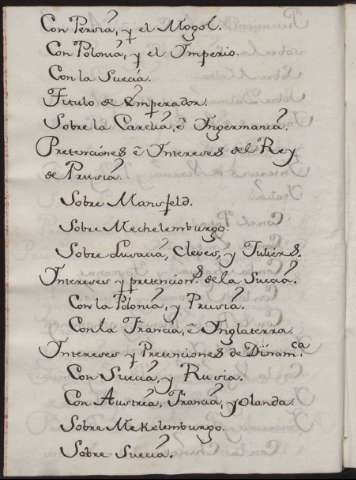 Con Persia, y el Mogol.
Con Polonia, y el Imperio.
Con la Suecia.
Titulo de Emperador.
Sobre la Carelia, è Ingermania.
Pretenciónes è Intereses del Rey
de Prusia.
Sobre Mansfeld.
Sobre Mechelemburgo.
Sobre Lusacia, Cleves, y Juliers.
Intereses y pretencion.s de la Suecia.
Con la Polonia, y Prusia.
Con la Francia, è Inglaterra.
Intereses y Pretenciones de Dinam.ca
Con Suecia, y Rusia.
Con Austria, Francia, y Olanda.
Sobre Mekelemburgo.
Sobre Suecia.